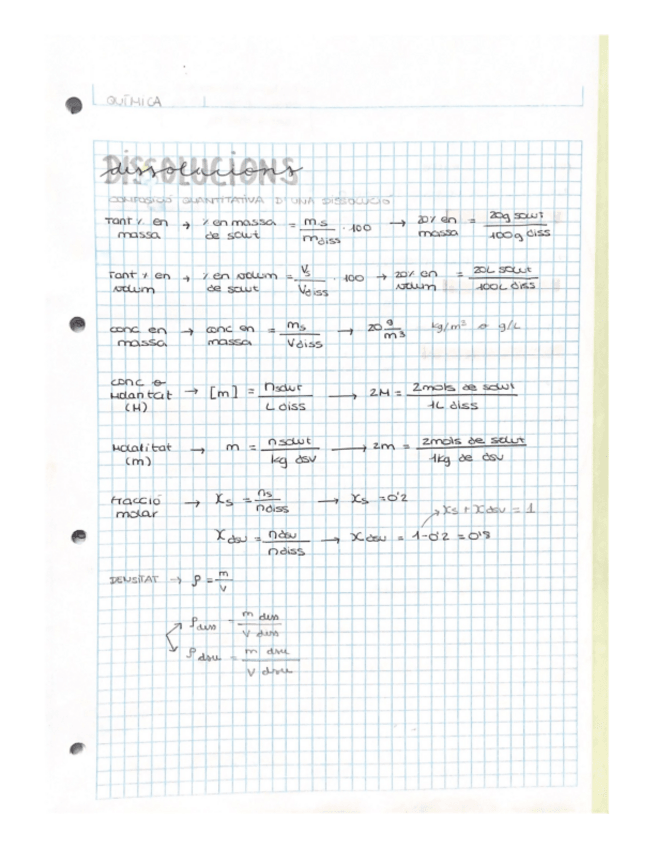 QUÍMICA
dissolucions
COMPOSICIÓ QUANTITATIVA D'UNA DISSOLUCIÓ
Tant % en massa → % en massa de solut = ms / mdiss · 100 → 20% en massa = 20g solut / 100g diss
Tant % en volum → % en volum de solut = Vs / Vdiss · 100 → 20% en volum = 20L solut / 100L diss
conc en massa → conc en massa = ms / Vdiss → 20 g/m³ kg/m³ o g/L
conc o Molaritat (M) → [m] = nsolut / L diss → 2M = 2mols de solut / 1L diss
Molalitat (m) → m = nsolut / kg dsv → 2m = 2mols de solut / 1kg de dsv
Fracció molar → Xs = ns / ndiss → Xs = 0'2
Xs + Xdsv = 1
Xdsv = ndsv / ndiss → Xdsv = 1-0'2 = 0'8
DENSITAT → ρ = m / V
ρdiss = m diss / V diss
ρdsv = m dsv / V dsv